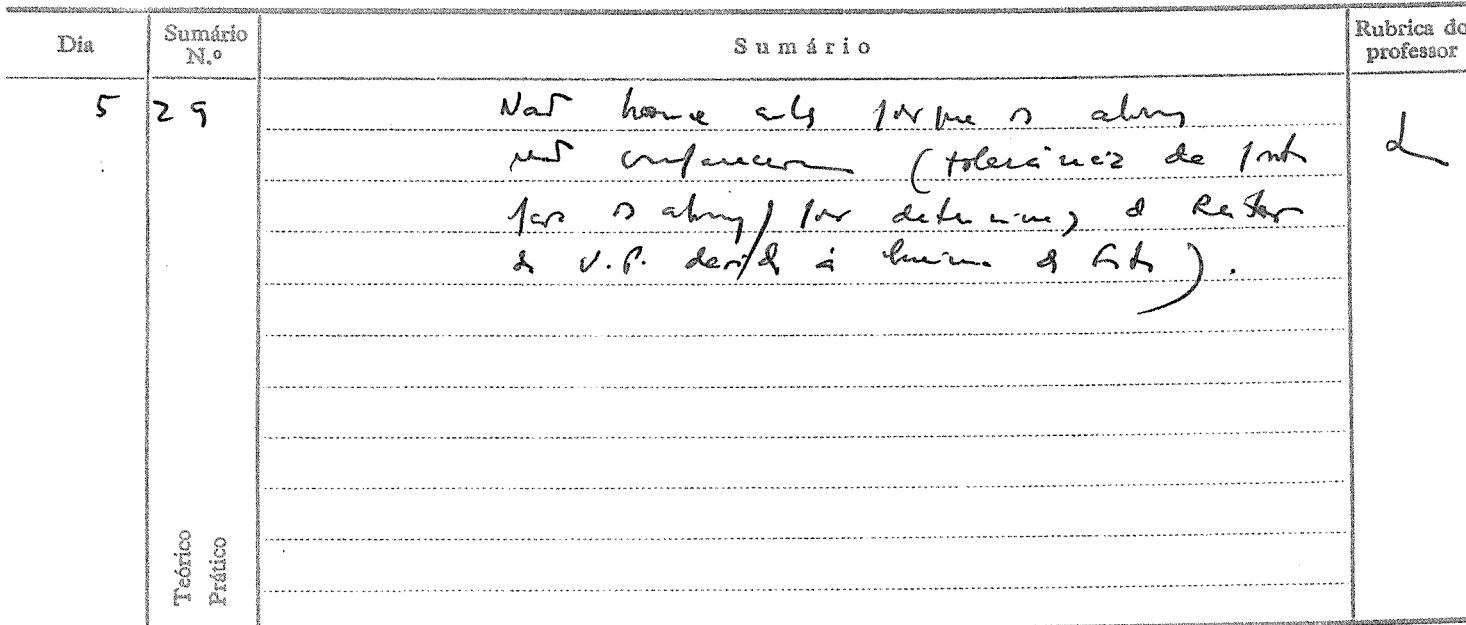 Dia
Sumário N.º
Sumário
Rubrica do professor
5
29
Não houve aula porque os alunos
não compareceram (tolerância de ponto
para os alunos, por determinação do Reitor
da U.P. devido à Queima das Fitas).
Teórico
Prático